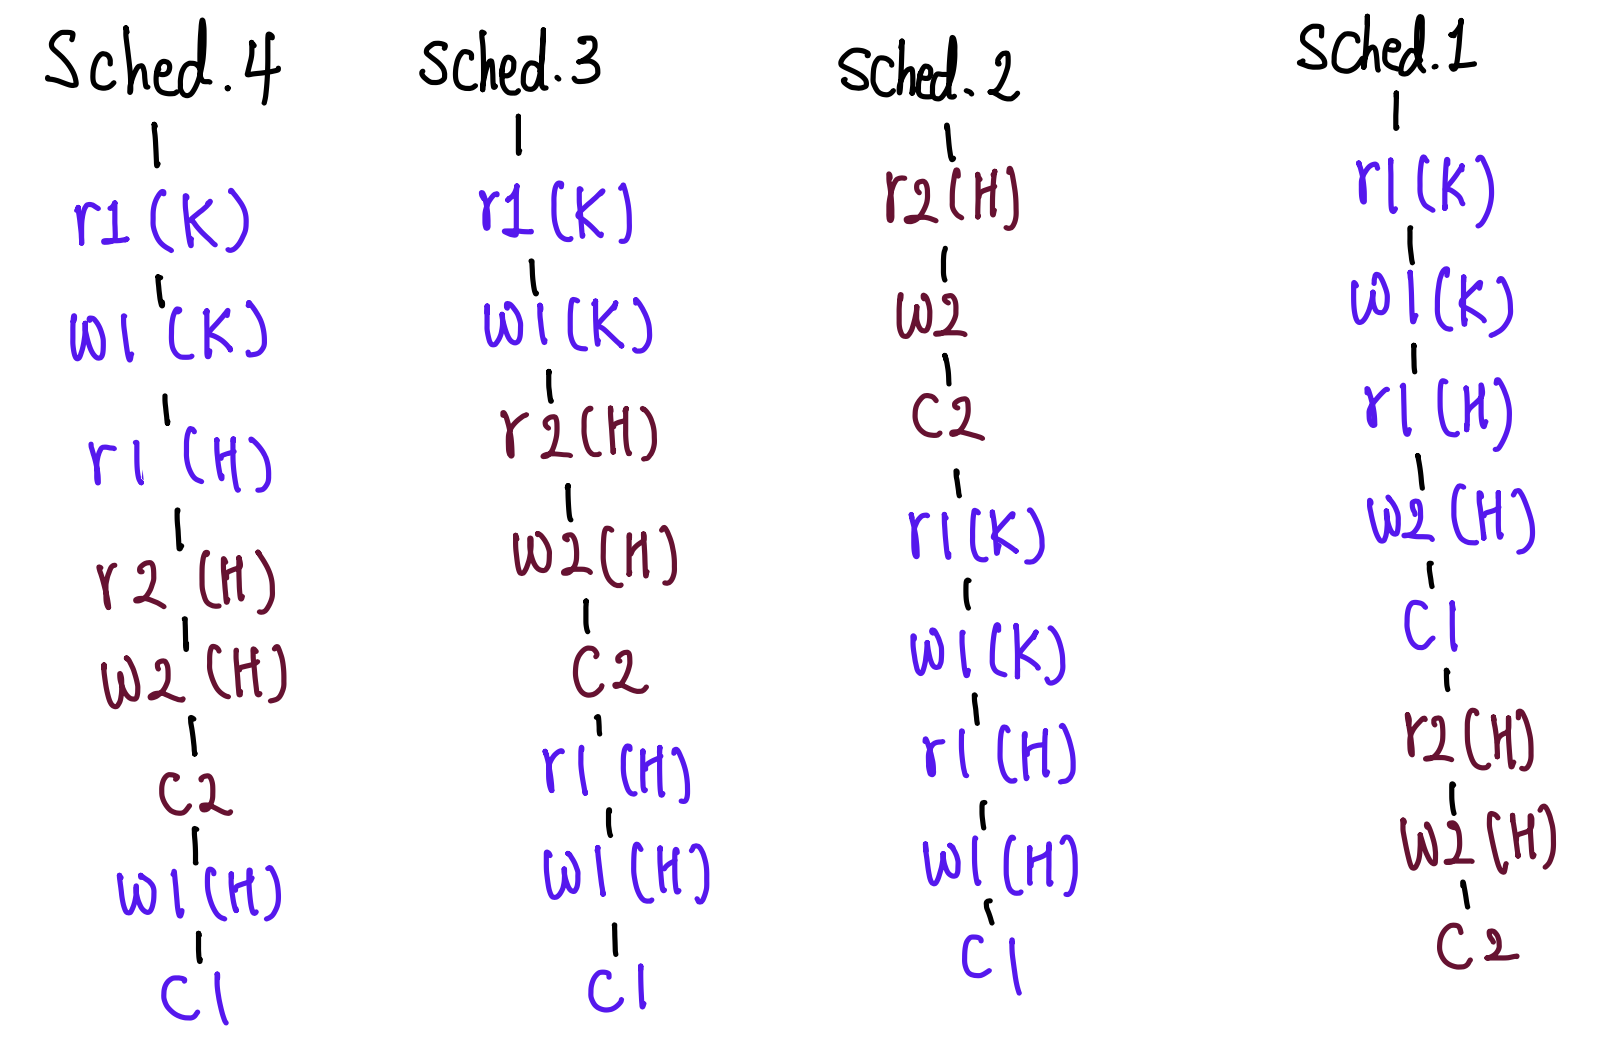 Sched.4
r1(K)
w1(K)
r1(H)
r2(H)
w2(H)
C2
w1(H)
C1
Sched.3
r1(K)
w1(K)
r2(H)
w2(H)
C2
r1(H)
w1(H)
C1
Sched.2
r2(H)
w2
C2
r1(K)
w1(K)
r1(H)
w1(H)
C1
Sched.1
r1(K)
w1(K)
r1(H)
w2(H)
C1
r2(H)
w2(H)
C2